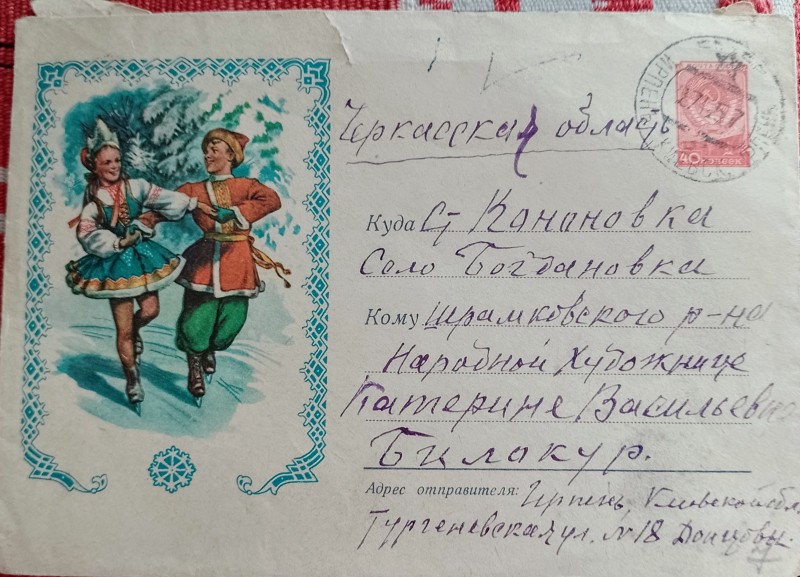 40 КОПЕЕК
Черкасская область
Куда Ст Канановка
Село Богдановка
Кому Шрамковского р-на
Народной Художнице
Катерине Васильевне
Билокур.
Адрес отправителя: Ирпень, Киевской обл.
Тургеневская ул. №18